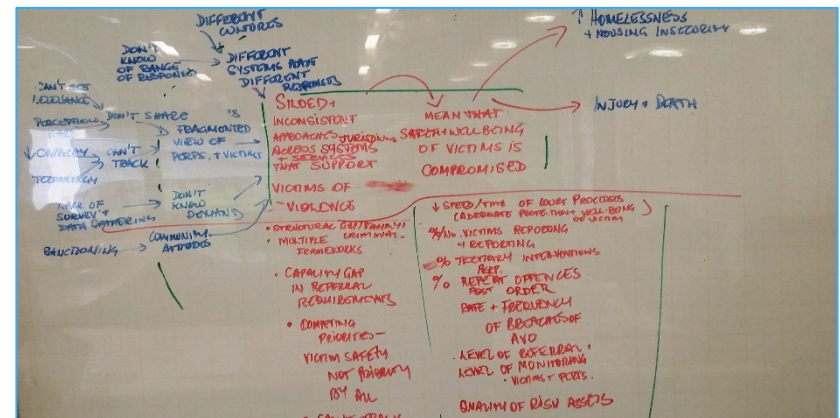 DIFFERENT
CULTURES
DON'T
KNOW
OF RANGE
OF RESPONSES
DIFFERENT
SYSTEMS HAVE
DIFFERENT
RESPONSES
CAN'T SEE
RELEVANCE
PERCEPTIONS
DON'T SHARE
FRAGMENTED
VIEW OF
PERPS. + VICTIMS
↓ CAPACITY
CAN'T
TRACK
TECHNOLOGY
LACK OF
SURVEY +
DATA GATHERING
DON'T
KNOW
DEMAND
SANCTIONING
COMMUNITY
ATTITUDES
SILOED +
INCONSISTENT
APPROACHES
ACROSS SYSTEMS
+ SERVICES
THAT SUPPORT
VICTIMS OF
VIOLENCE
MEAN THAT
SAFETY + WELLBEING
OF VICTIMS IS
COMPROMISED
↑ HOMELESSNESS
+ HOUSING INSECURITY
INJURY + DEATH
• MULTIPLE
FRAMEWORKS
• CAPACITY GAP
IN REFERRAL
REQUIREMENTS
• COMPETING
PRIORITIES –
VICTIM SAFETY
NOT PRIORITY
BY ALL
↓ SPEED/TIME OF COURT PROCESSES
(ADEQUATE PROTECTION + WELL-BEING
OF VICTIM)
%/NO. VICTIMS REPORTING
+ REPORTING
% TERTIARY INTERVENTIONS
PERP.
% REPEAT OFFENCES
POST ORDER
RATE + FREQUENCY
OF BREACHES OF
AVO
• LEVEL OF REFERRAL
LEVEL OF MONITORING
• VICTIMS + PERPS.
QUALITY OF RISK ASSESS